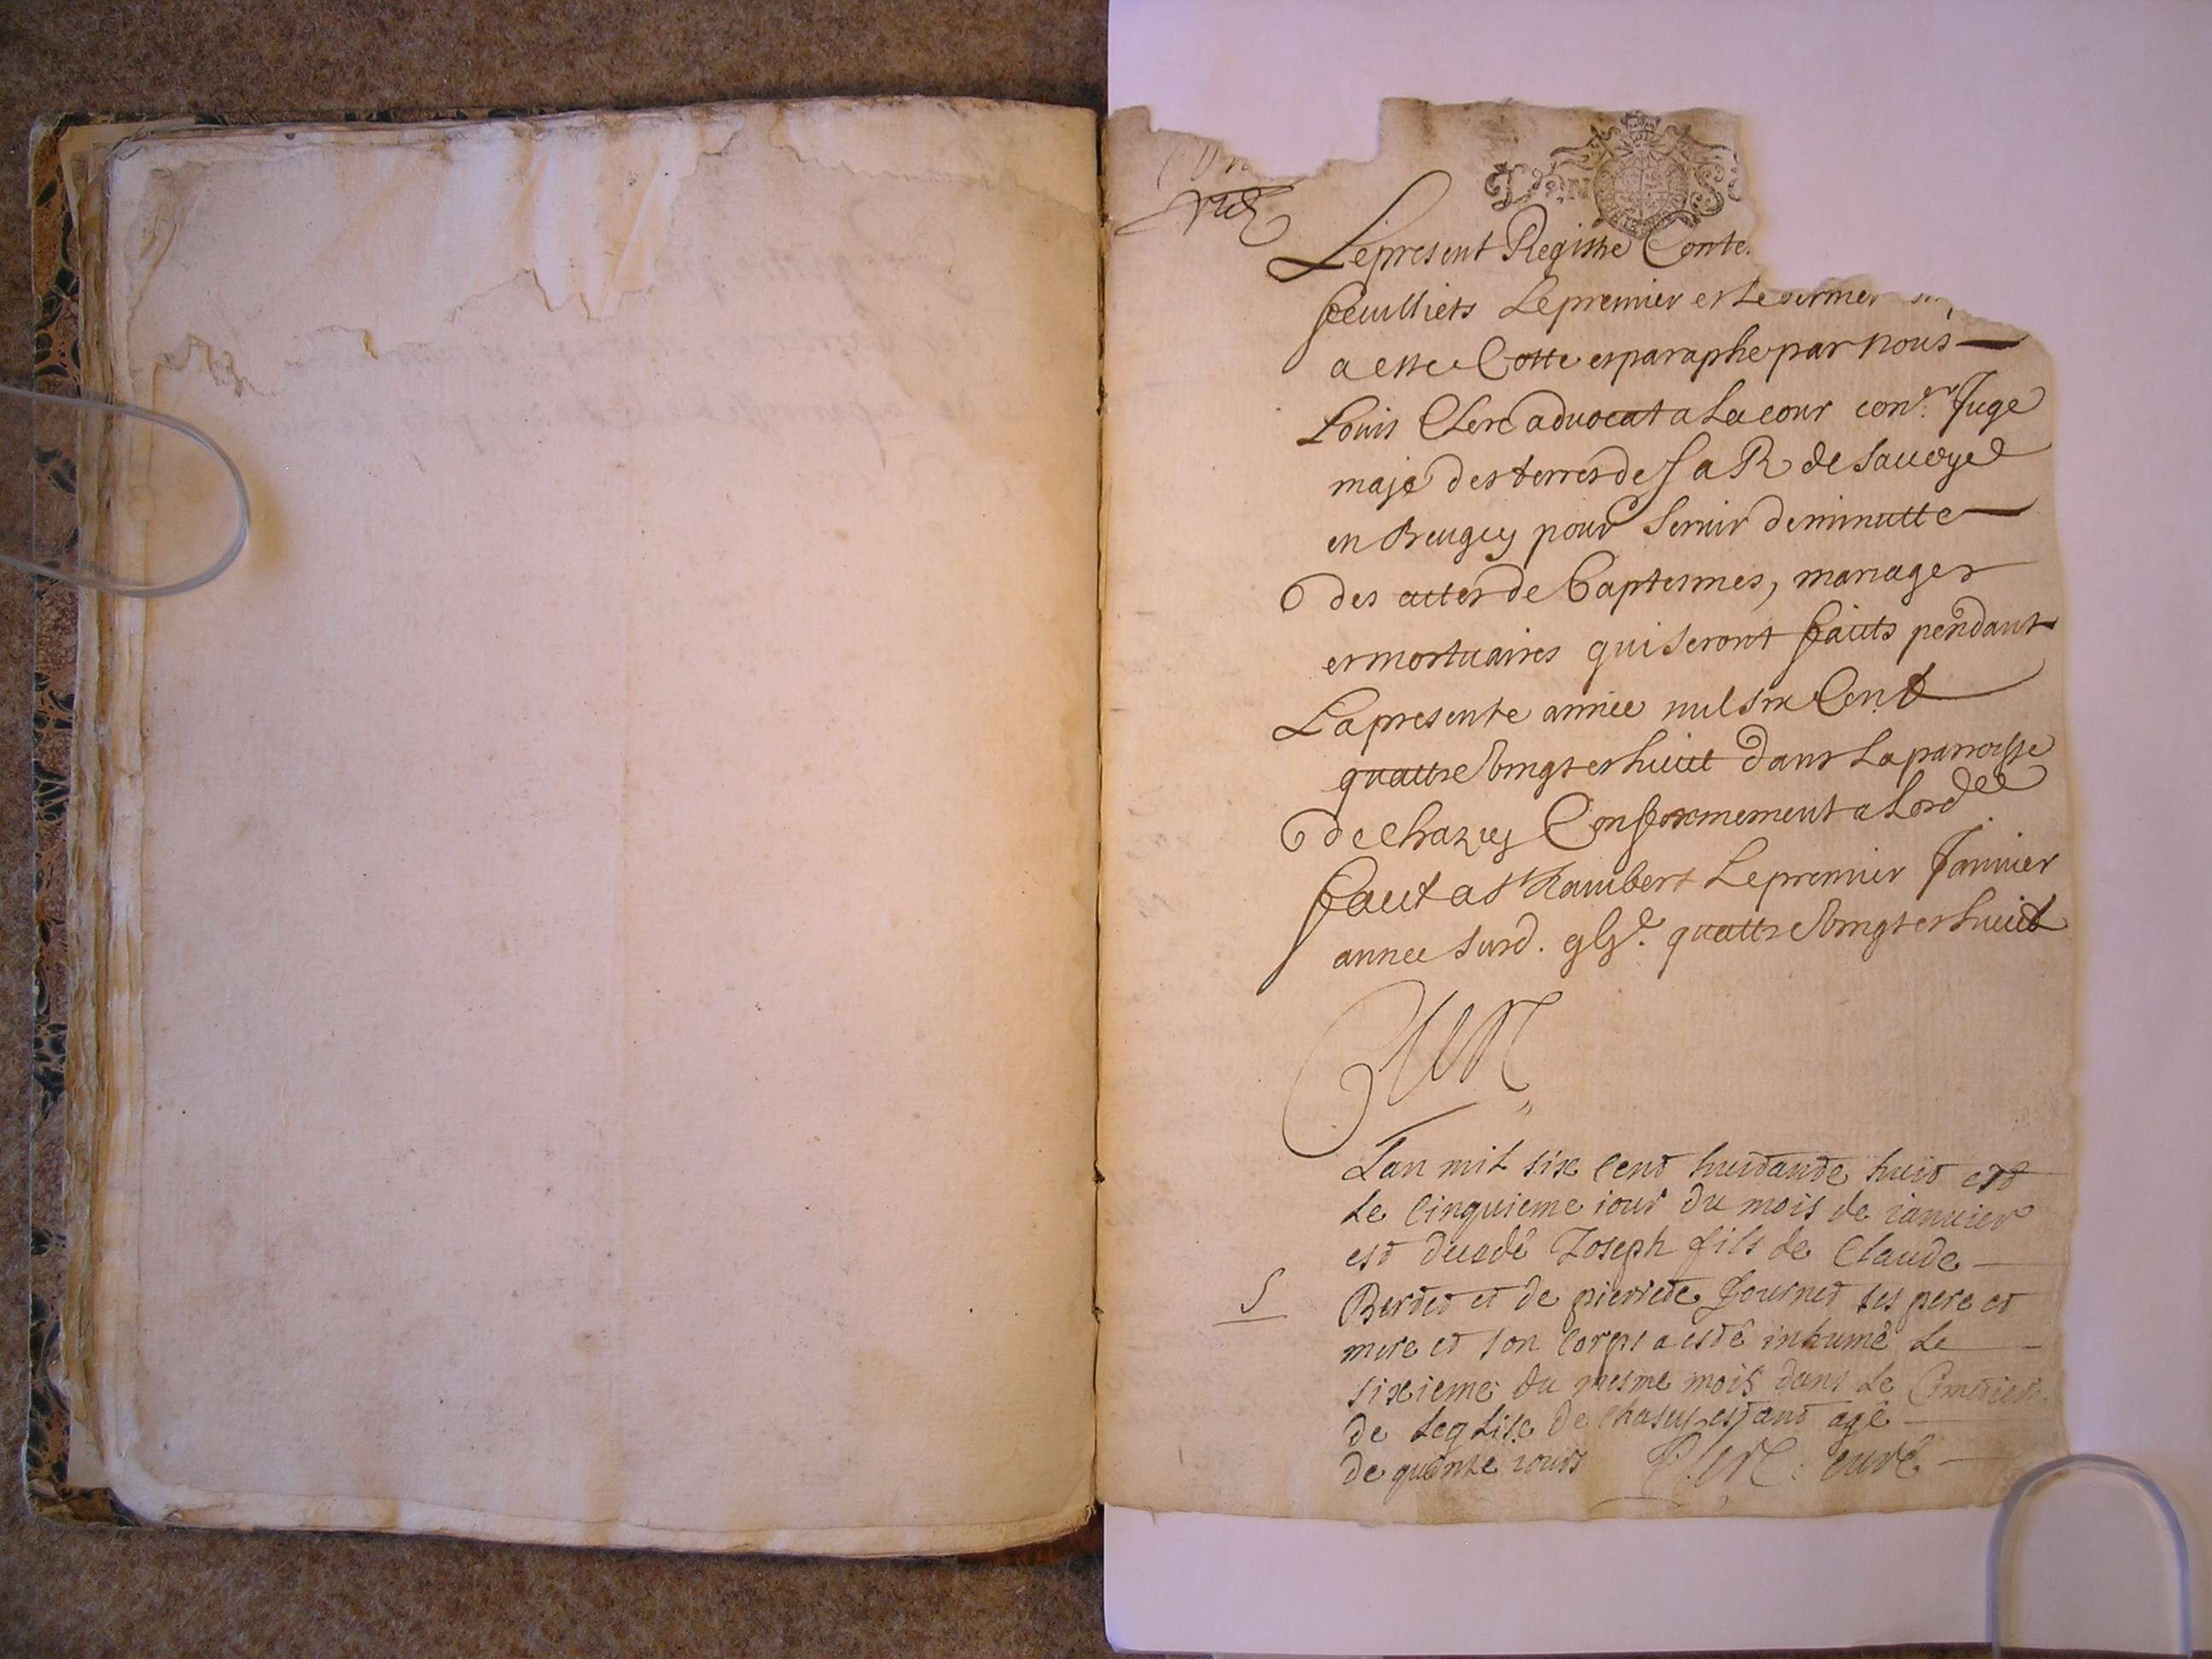 Le present Registre Conte
feuilliets Le premier et Le dernier
a este Cotte et paraphe par nous
Louis Clerc advocat a La cour con.er Juge
maje des terres de S a R de Sauoye
en Beugey pour seruir de minutte
des actes de baptesmes, mariages
et mortuaires qui seront faicts pendant
La presente année mil six Cent
quattre vingt et huict dans La parroisse
de Chazey Conformement a Lord.ce
faict a St Rambert Le premier Januier
annee susd. quattre vingt et huict
Clerc
Lan mil six cent huitante huit et
le cinquieme iour du mois de ianuier
est decedé Joseph fils de Claude
S
et de pierrete Journet ses pere et
mere et son corps a esté inhumé le
sixieme du mesme mois dans le Cimetiere
de leglise de Chasey estant agé
de iours Clerc curé